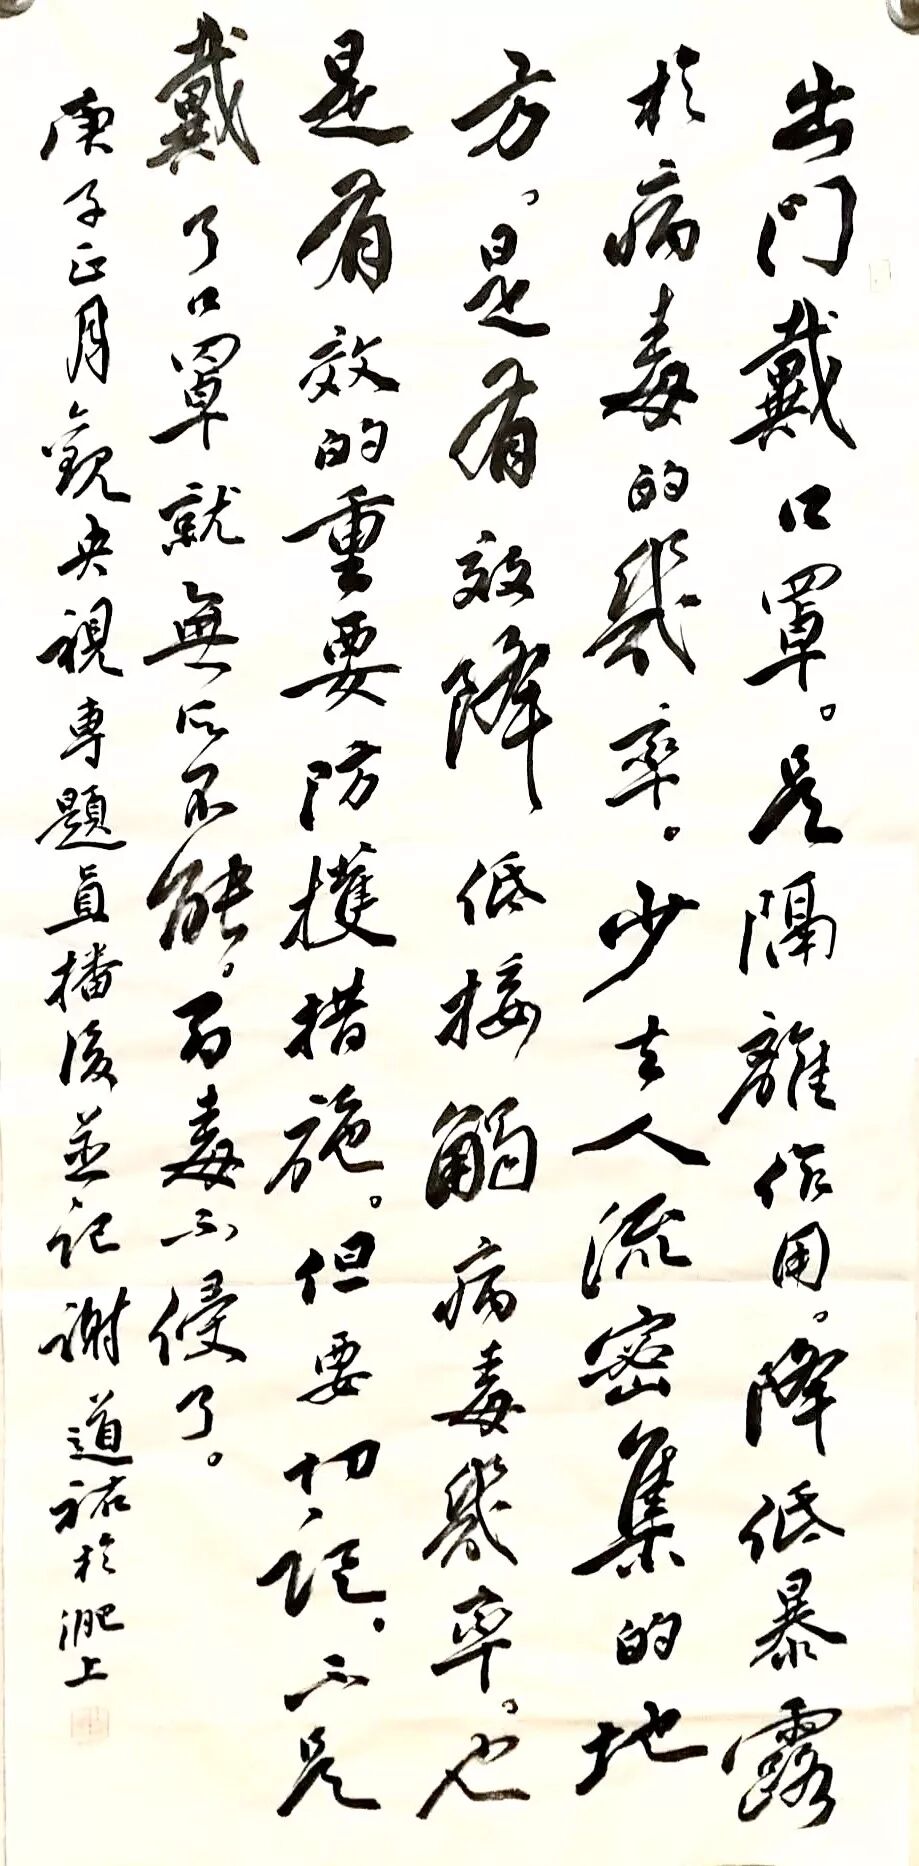 出门戴口罩。是隔離作用。降低暴露
於病毒的幾率。少去人流密集的地
方。是有效降低接觸病毒幾率。也
是有效的重要防擭措施。但要切記。不是
戴了口罩就無所不能。病毒不侵了。
庚子正月觀央視専題直播後並記謝道祐於淝上